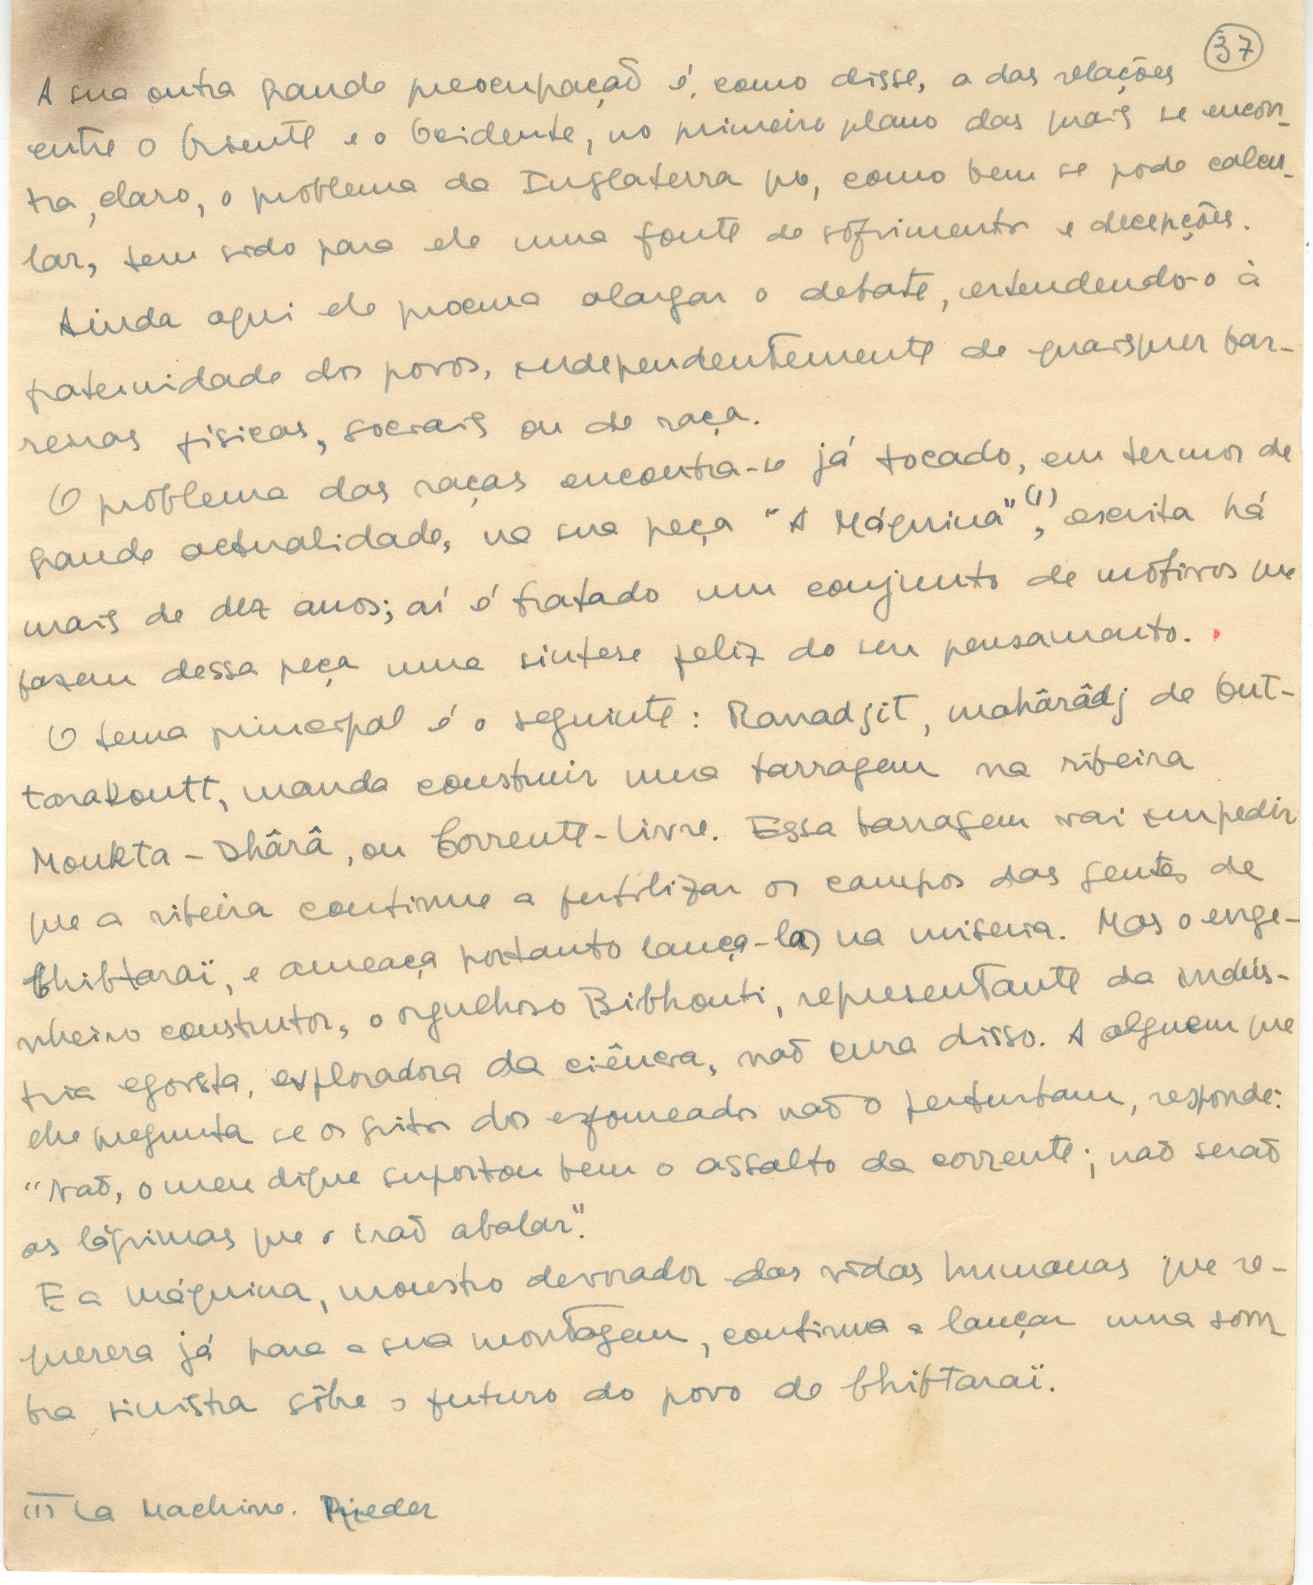 37
A sua outra grande preocupação é, como disse, a das relações
entre o Oriente e o Ocidente, no primeiro plano das quais se encon-
tra, claro, o problema da Inglaterra que, como bem se pode calcu-
lar, tem sido para ele uma fonte de sofrimento e decepções.
Ainda aqui ele procura alargar o debate, estendendo-o à
fraternidade dos povos, independentemente de quaisquer bar-
reiras físicas, sociais ou de raça.
O problema das raças encontra-se já tocado, em termos de
grande actualidade, na sua peça "A Máquina"(1), escrita há
mais de dez anos; aí é tratado um conjunto de motivos que
fazem dessa peça uma síntese feliz do seu pensamento.
O tema principal é o seguinte: Ranadjit, mahârâdj de Out-
tarakoutt, manda construir uma barragem na ribeira
Moukta-Dhârâ, ou Corrente-Livre. Essa barragem vai impedir
que a ribeira continue a fertilizar os campos das gentes de
Chibtaraï, e ameaça portanto lança-las na miseria. Mas o enge-
nheiro construtor, o orgulhoso Bibhouti, representante da indús-
tria egoista, exploradora da ciência, não cura disso. A alguem que
lhe pregunta se os gritos dos esfomeados não o perturbam, responde:
"Não, o meu dique suportou bem o assalto da corrente; não serão
as lágrimas que o irão abalar".
E a máquina, monstro devorador das vidas humanas que re-
querera já para a sua montagem, continua a lançar uma som
bra sinistra sôbre o futuro do povo de Chibtaraï.
(1) La Machine. Rieder